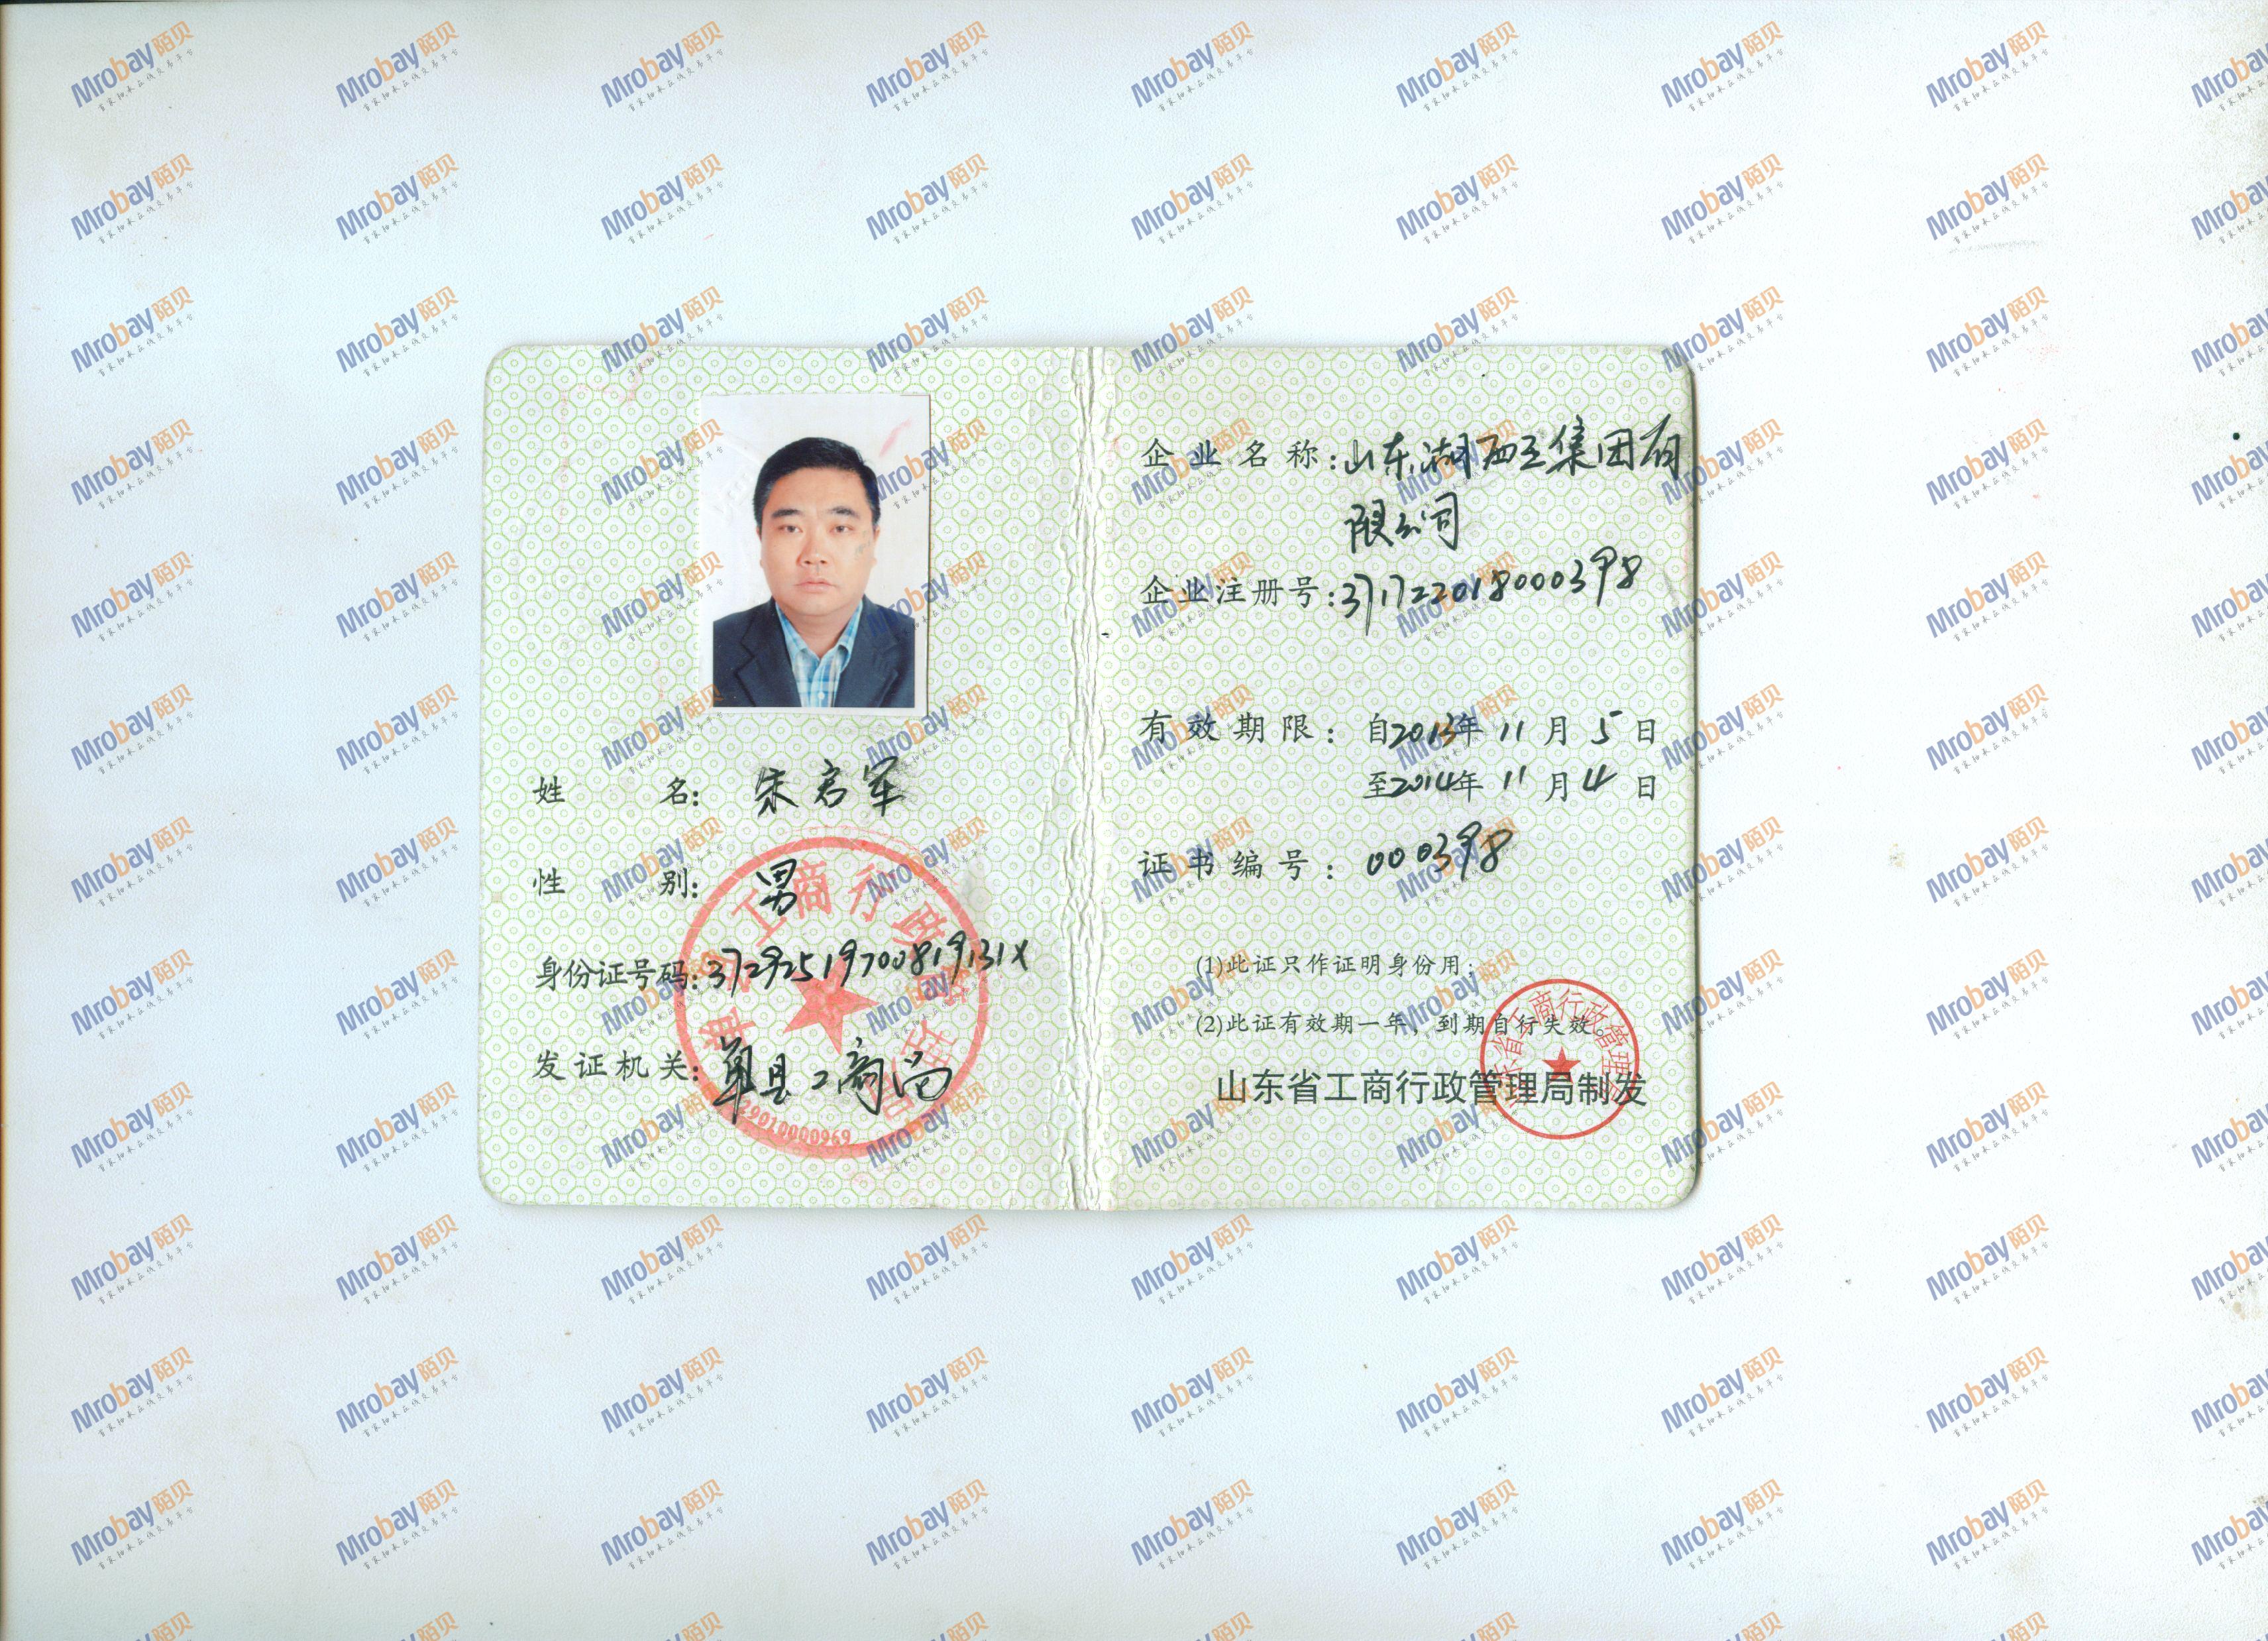 姓名：朱启军
性别：男
身份证号码：37292519700819131X
发证机关：单县工商局
2901000969
企业名称：山东湖西王集团有
限公司
企业注册号：371722018000398
有效期限：自2013年11月5日
至2014年11月4日
证书编号：000398
(1)此证只作证明身份用；
(2)此证有效期一年，到期自行失效。
山东省工商行政管理局制发
山东省工商行政管理局
Mrobay陌贝